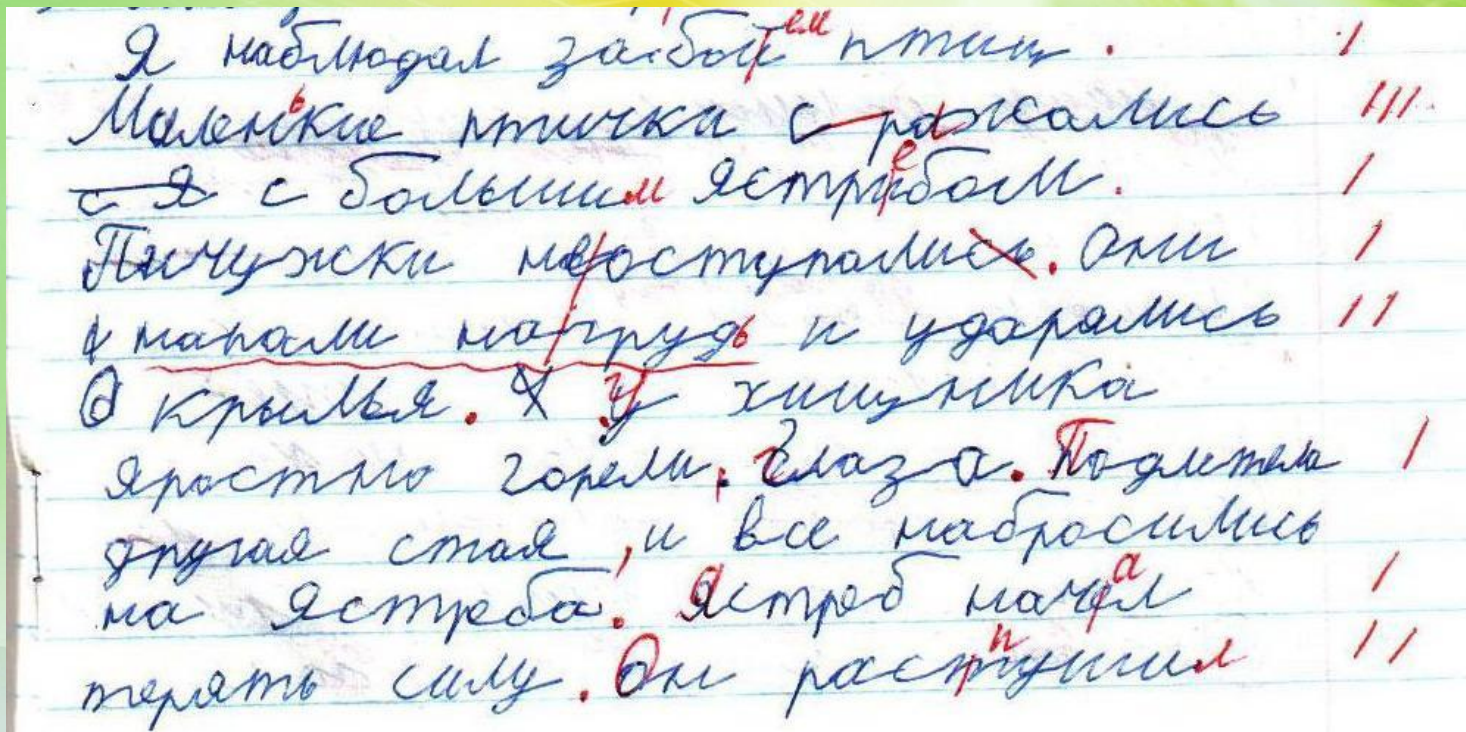 Я наблюдал забой ем птиц.
Маленькие птички сражались
с я с большим ястрибом.
Пичужки неоступались. Они
напали нагрудь и ударались
о крылья. У хищника
яростно горели, глаза. Подлетела
другая стая, и все набросились
на ястреба. Ястреб начел
терять силу. Он растушил